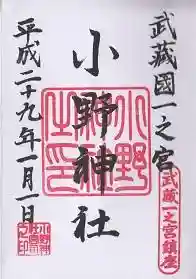 武蔵國一之宮
武蔵一之宮鎮座
小野神社
小野神社之印
平成二十九年一月一日